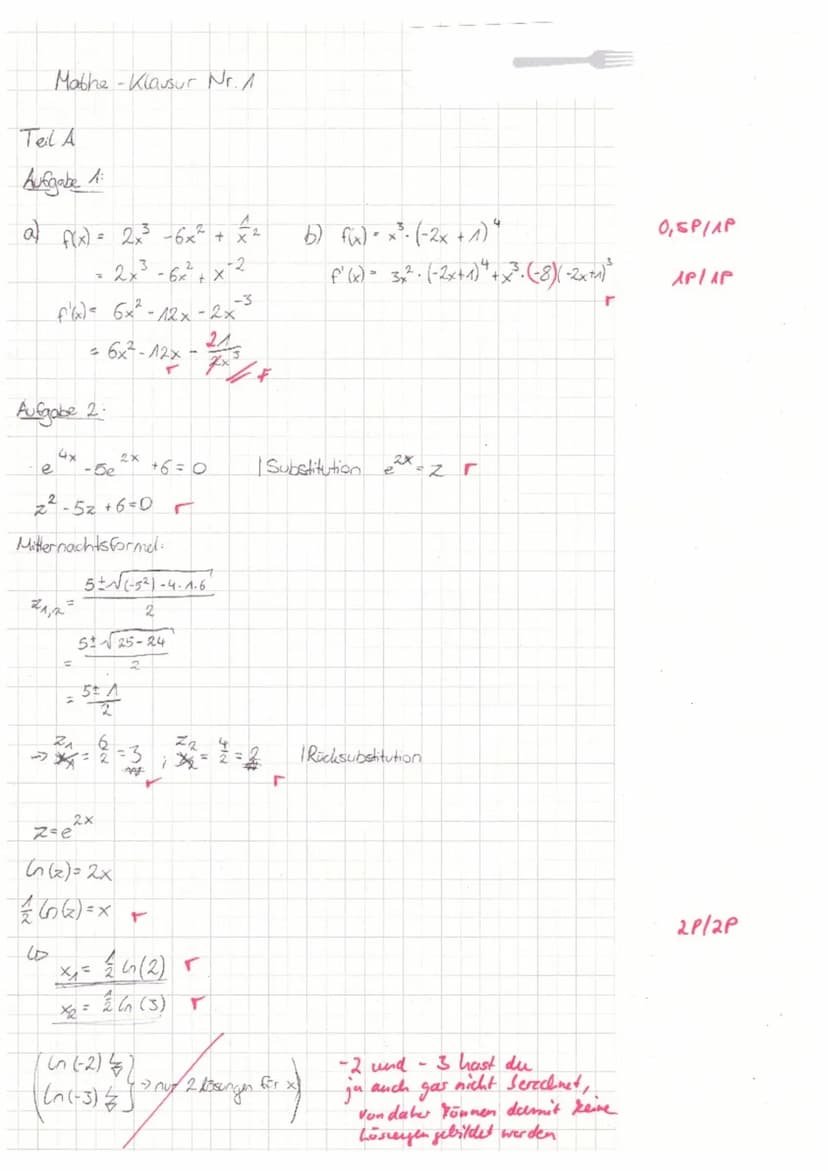 Mathe-Klausur Nr. 1
Teil A
Aufgabe 1:
a) f(x) = 2x³ - 6x² + 1/x² b) f(x) = x³ · (-2x + 1)⁴ 0,5P/1P
= 2x³ - 6x² + x⁻² f'(x) = 3x² · (-2x+1)⁴ + x³ · (-8)(-2x+1)³ 1P/1P
f'(x) = 6x² - 12x - 2x⁻³ r
= 6x² - 12x - 21/2x³
r F
Aufgabe 2:
e⁴ˣ - 5e²ˣ + 6 = 0 | Substitution e²ˣ = z r
z² - 5z + 6 = 0 r
Mitternachtsformel:
z₁,₂ = (5 ± √((-5²) - 4·1·6))/2
= (5 ± √(25 - 24))/2
= (5 ± 1)/2
→ z₁ = 6/2 = 3 ; z₂ = 4/2 = 2 | Rücksubstitution
r r
z = e²ˣ
ln(z) = 2x
1/2 ln(z) = x r 2P/2P
↳ x₁ = 1/2 ln(2) r
x₂ = 1/2 ln(3) r
(ln(-2) ↯
ln(-3) ↯ } → nur 2 Lösungen für x)
-2 und -3 hast du
ja auch gar nicht berechnet,
von daher können damit keine
Lösungen gebildet werden